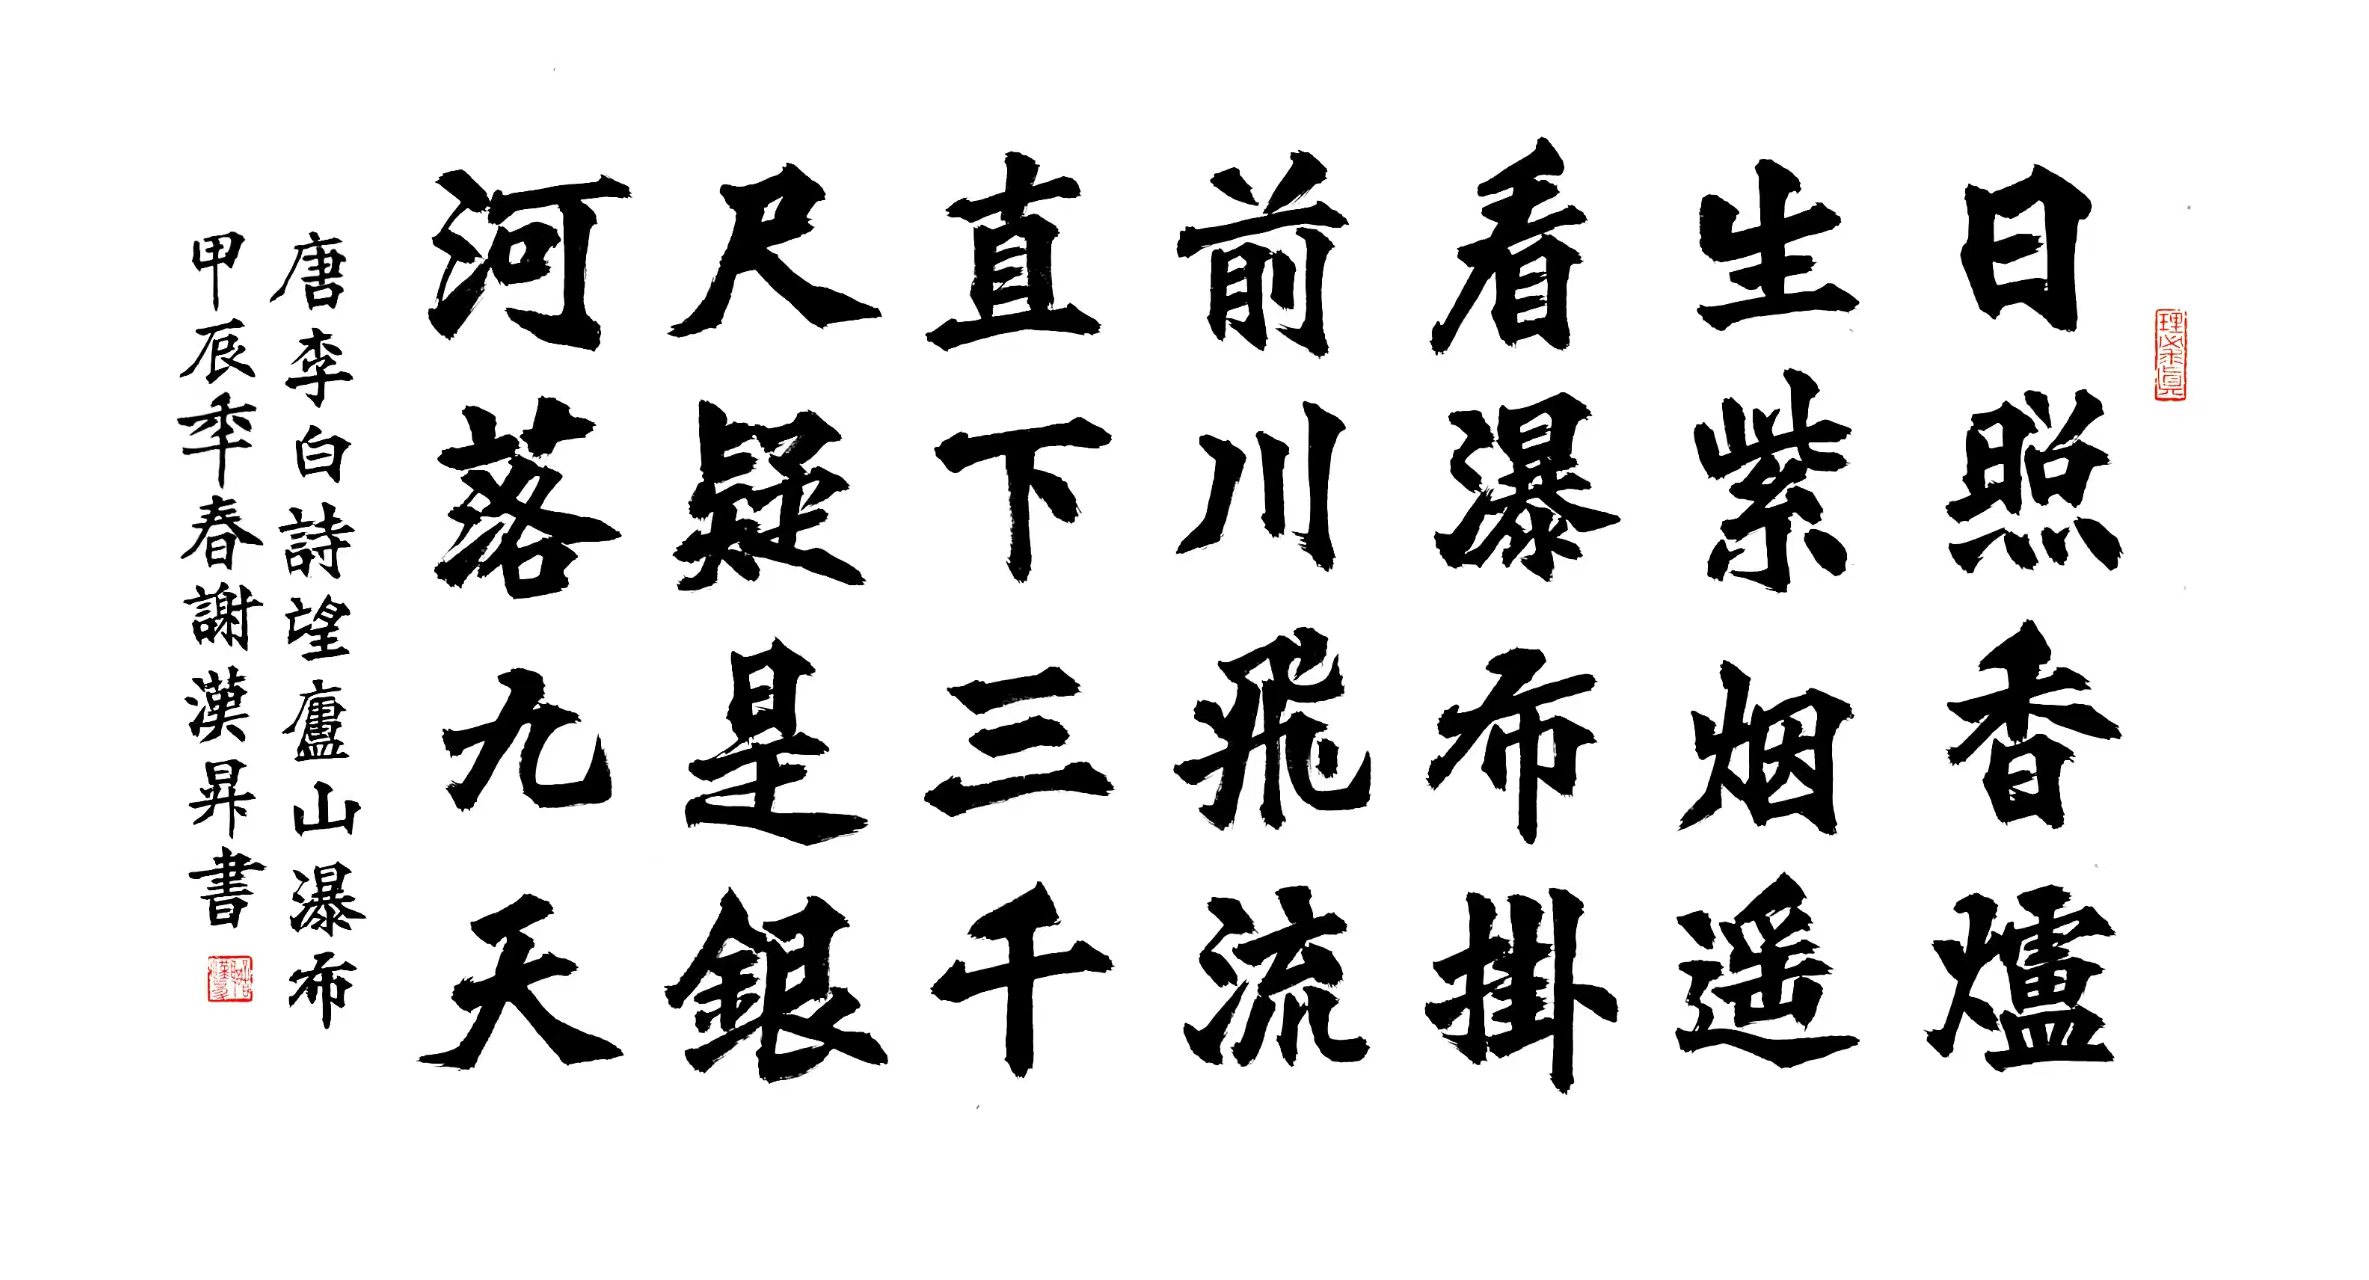 日照香爐
生紫烟遥
看瀑布掛
前川飛流
直下三千
尺疑是銀
河落九天
唐李白詩望廬山瀑布
甲辰年春謝漢昇書